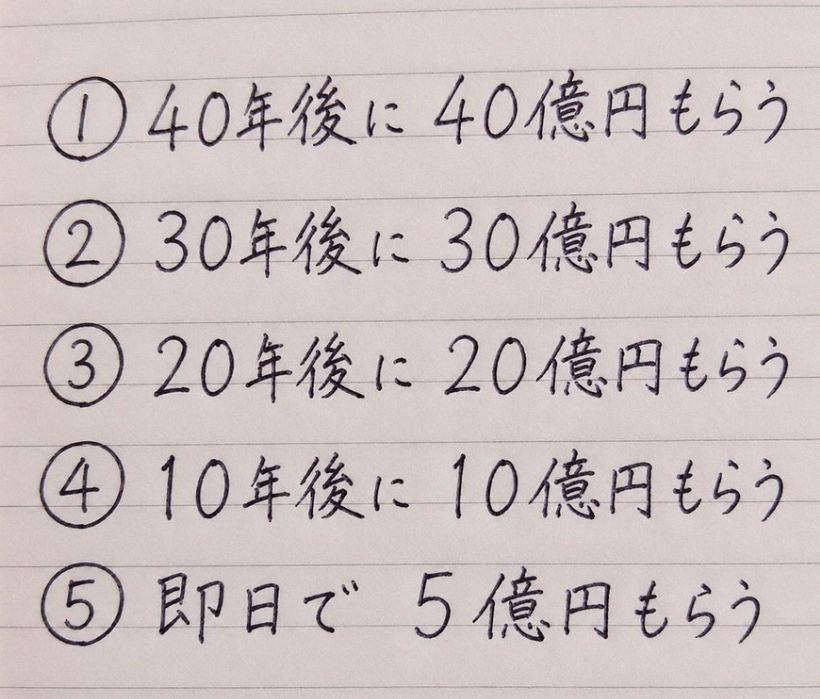 ① 40年後に 40億円もらう
② 30年後に 30億円もらう
③ 20年後に 20億円もらう
④ 10年後に 10億円もらう
⑤ 即日で 5億円もらう